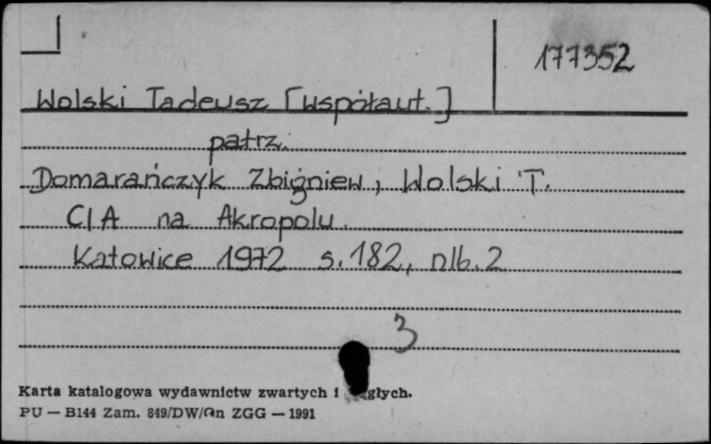 177352
Wolski Tadeusz [współaut.]
patrz.
Domarańczyk Zbigniew, Wolski T.
CIA na Akropolu.
Katowice 1972 s. 182, nlb. 2
3
Karta katalogowa wydawnictw zwartych i
PU — B144 Zam. 849/DW/Gn ZGG — 1991